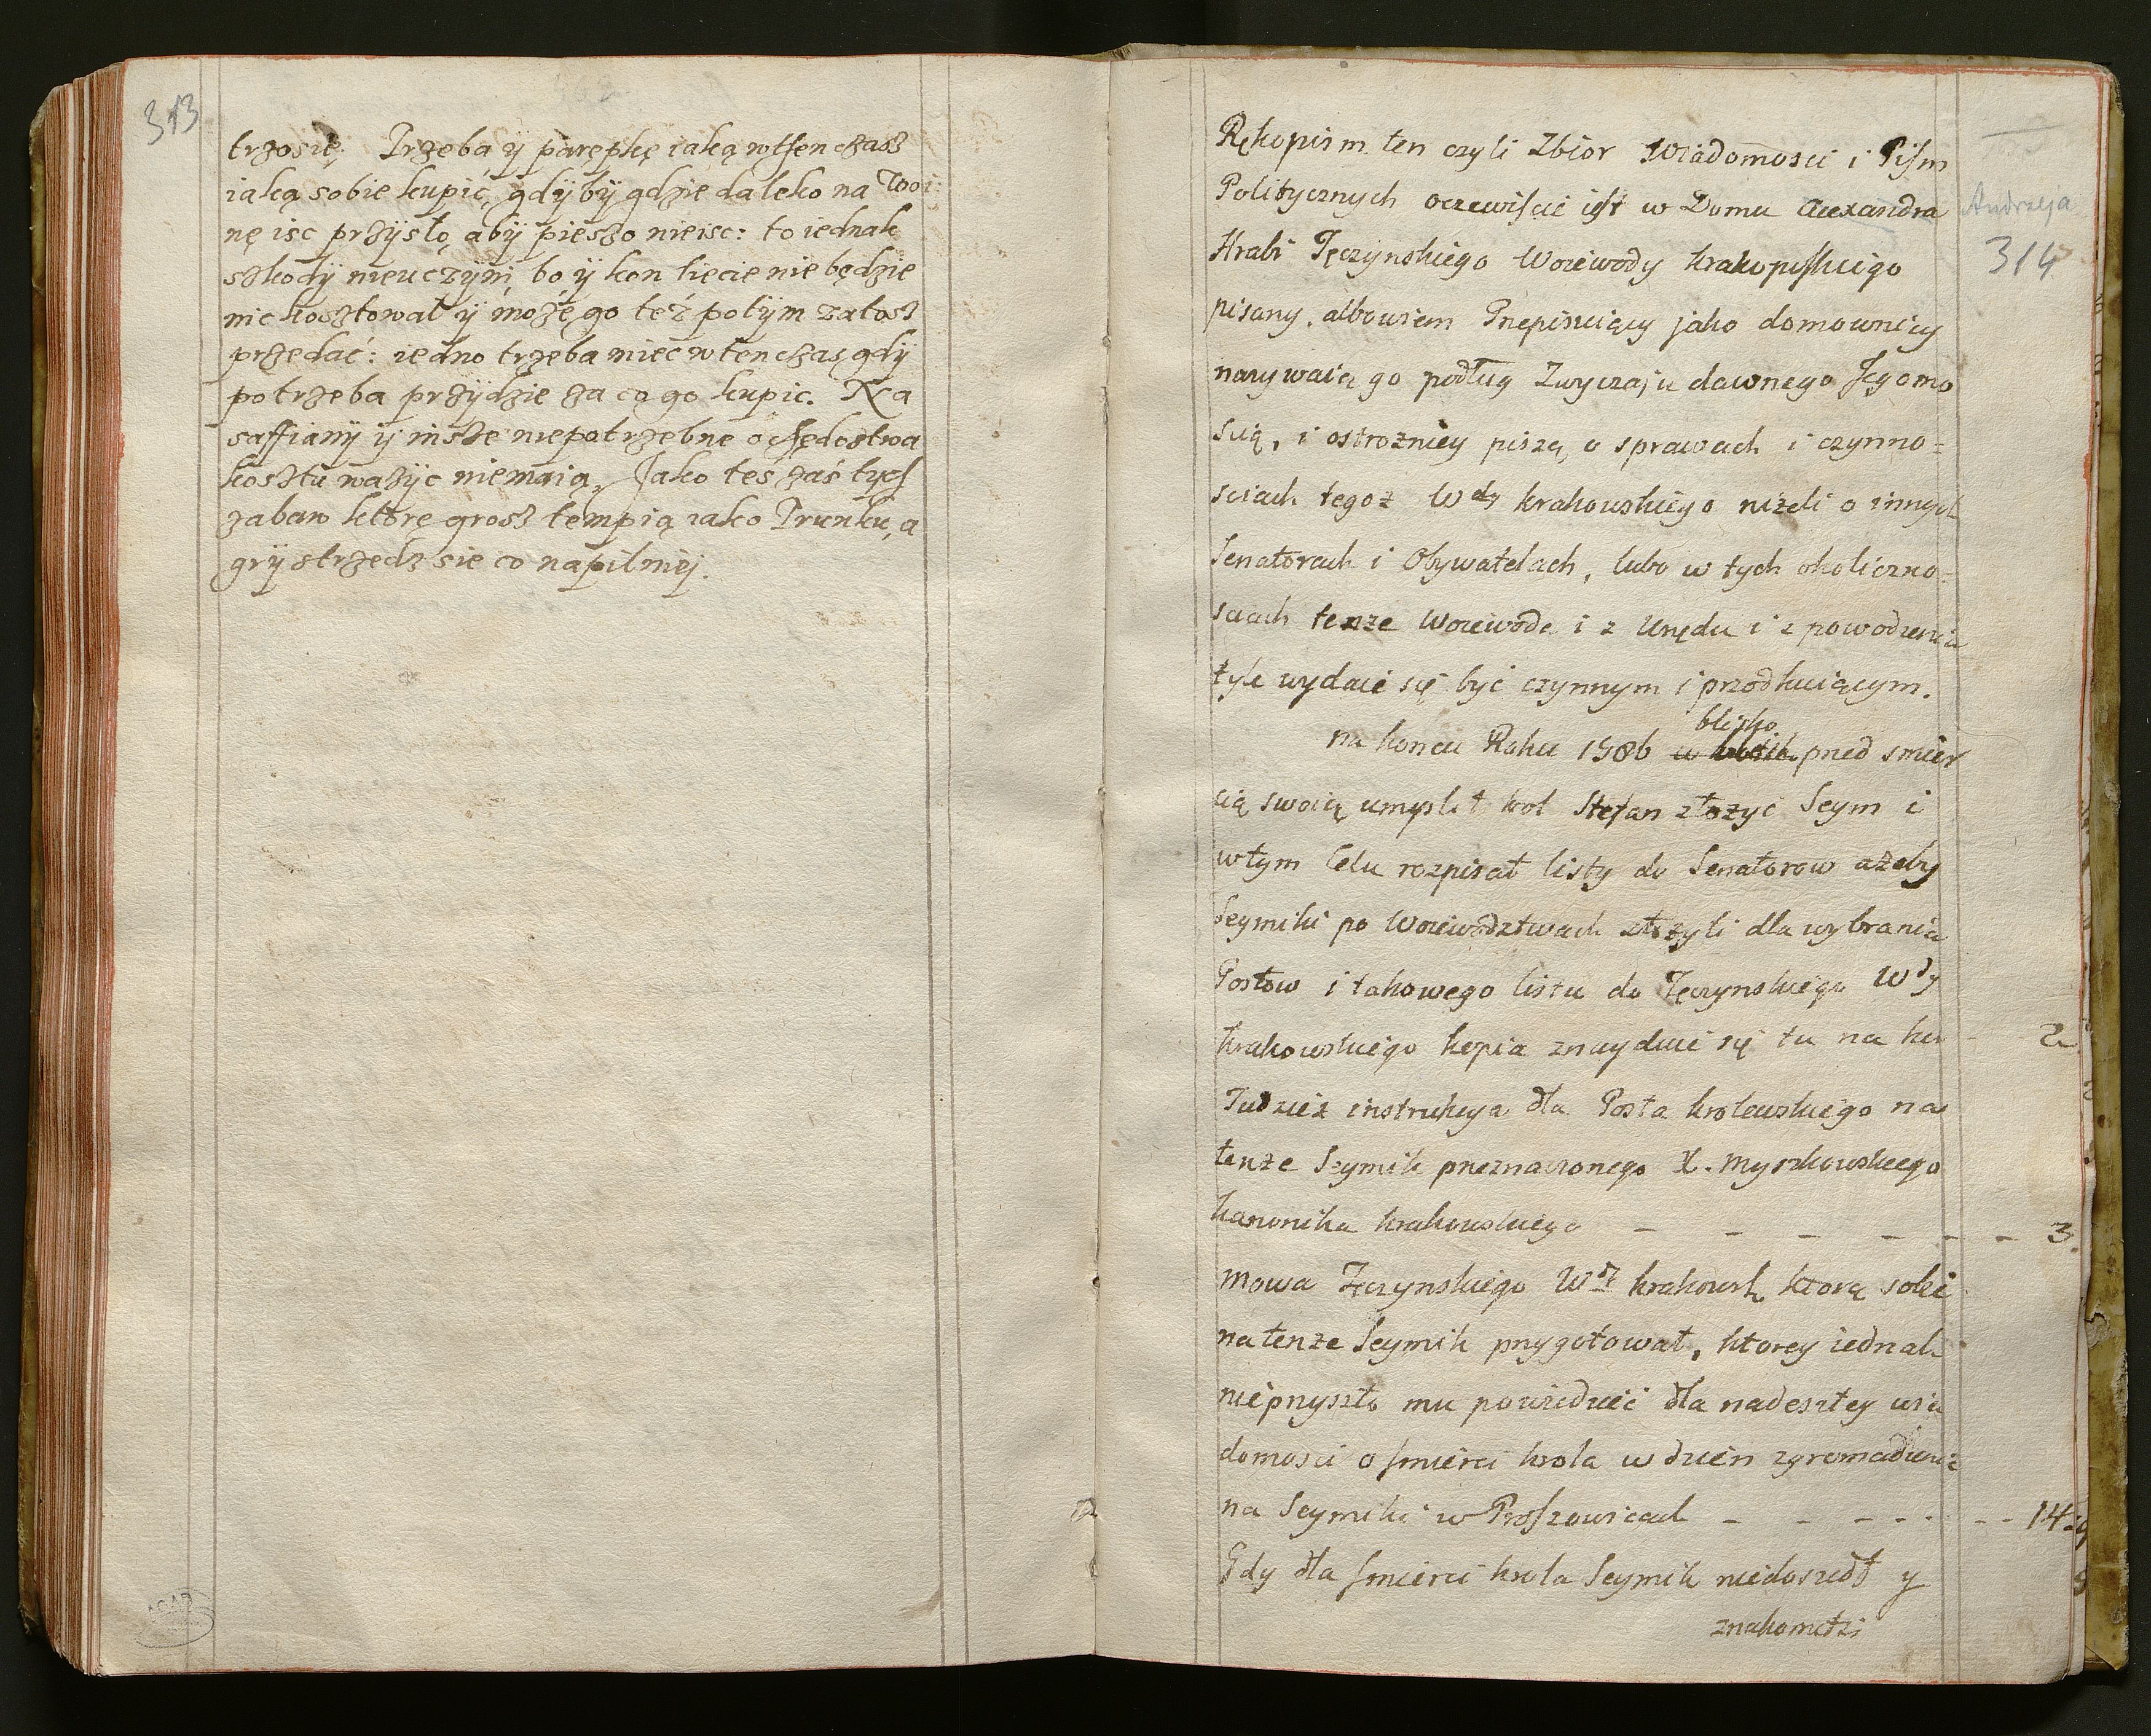 313
trzosie. Trzeba ÿ parepkę iaką wtſen czasz
iaką sobie kupić, gdÿbÿ gdzie daleko na Woi:
nę isc przÿszło, abÿ pieszo nieisc: to iednak
szkodÿ nieuczÿni, bo ÿ kon liecie nie będzie
nic kosztował ÿ może go też potÿm zatosz
przedać: iedno trzeba miec wtenczas gdÿ
potrzeba przÿdzie za cą go kupic. Na
saffianÿ ÿ insze niepotrzebne ochędostwa
kosztu wazÿc niemaią. Jako tes zaś tych
zabaw ktore grosz tempią iako Trunku, a
grÿ strzedz sie co napilniej.
Rękopism ten czyli Zbior Wiadomosci i Piſm
Politycznych oczewiſcie ieſt w Domu Alexandra
Andrzeja
Hrabi Tęczynskiego Woiewody krakowſkiego
314
pisany, albowiem Przepisuiący jako domownicy
nazywaią go podług Zwyczaju dawnego Jegomo
scią, i ostrożniey piszą o sprawach i czynno=
sciach tegoz Wdy krakowskiego niżeli o innych
Senatorach i Obywatelach, lubo w tych okoliczno=
sciach tenze Woiewoda i z Urzędu i z powodzenia
tyle wydaie się być czynnym i przodkuiącym.
blisko
na koncu Roku 1586 w przed smier
cią swoią umyslił krol Stefan złożyć Seym i
w tym Celu rozpisał listy do Senatorow ażeby
Seymiki po Woiewodztwach złożyli dla wybrania
Posłow i takowego listu do Tęczynskiego Wdy
krakowskiego kopia znayduie się tu na kar - 2
Tudzież instrukcya dla Posła krolewskiego na
tenże Seymik przeznaczonego X. Myszkowskiego
kanonika krakowskiego - - - - - - 3.
Mowa Tęczynskiego Wdy krakowsk. ktorą sobie
na tenze Seymik przygotował, ktorey iednak
nieprzyszło mu powiedzieć dla nadeszłey wia
domosci o ſmierci krola w dzien zgromadzenia
na Seymiki w Proſzowicach - - - - - - 14.
Gdy dla ſmierci krola Seymik niedoszedł y
znakomitsi